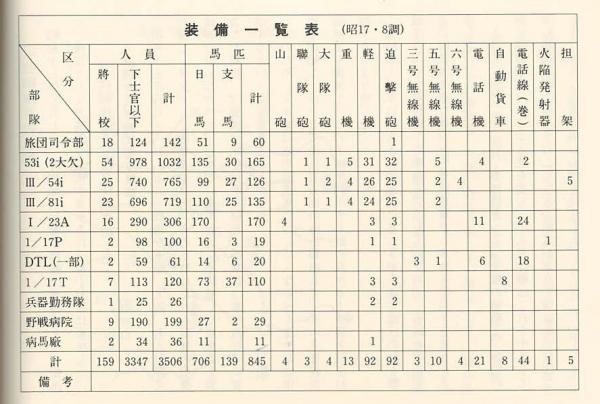 装備一覧表 (昭17・8調)
区分 部隊 人員 馬匹 山砲 聯隊砲 大隊砲 重機 軽機 迫撃砲 三号無線機 五号無線機 六号無線機 電話機 自動貨車 電話線(巻) 火焔発射器 担架
將校 下士官以下 計 日馬 支馬 計
旅団司令部 18 124 142 51 9 60 1
53i (2大欠) 54 978 1032 135 30 165 1 1 5 31 32 5 4 2
Ⅲ/54i 25 740 765 99 27 126 1 2 4 26 25 2 4 5
Ⅲ/81i 23 696 719 110 25 135 1 1 4 24 25 2
Ⅰ/23A 16 290 306 170 170 4 3 3 11 24
1/17P 2 98 100 16 3 19 1 1 1
DTL(一部) 2 59 61 14 6 20 3 1 6 18
1/17T 7 113 120 73 37 110 3 3 8
兵器勤務隊 1 25 26 2 2
野戦病院 9 190 199 27 2 29
病馬廠 2 34 36 11 11 1
計 159 3347 3506 706 139 845 4 3 4 13 92 92 3 10 4 21 8 44 1 5
備考